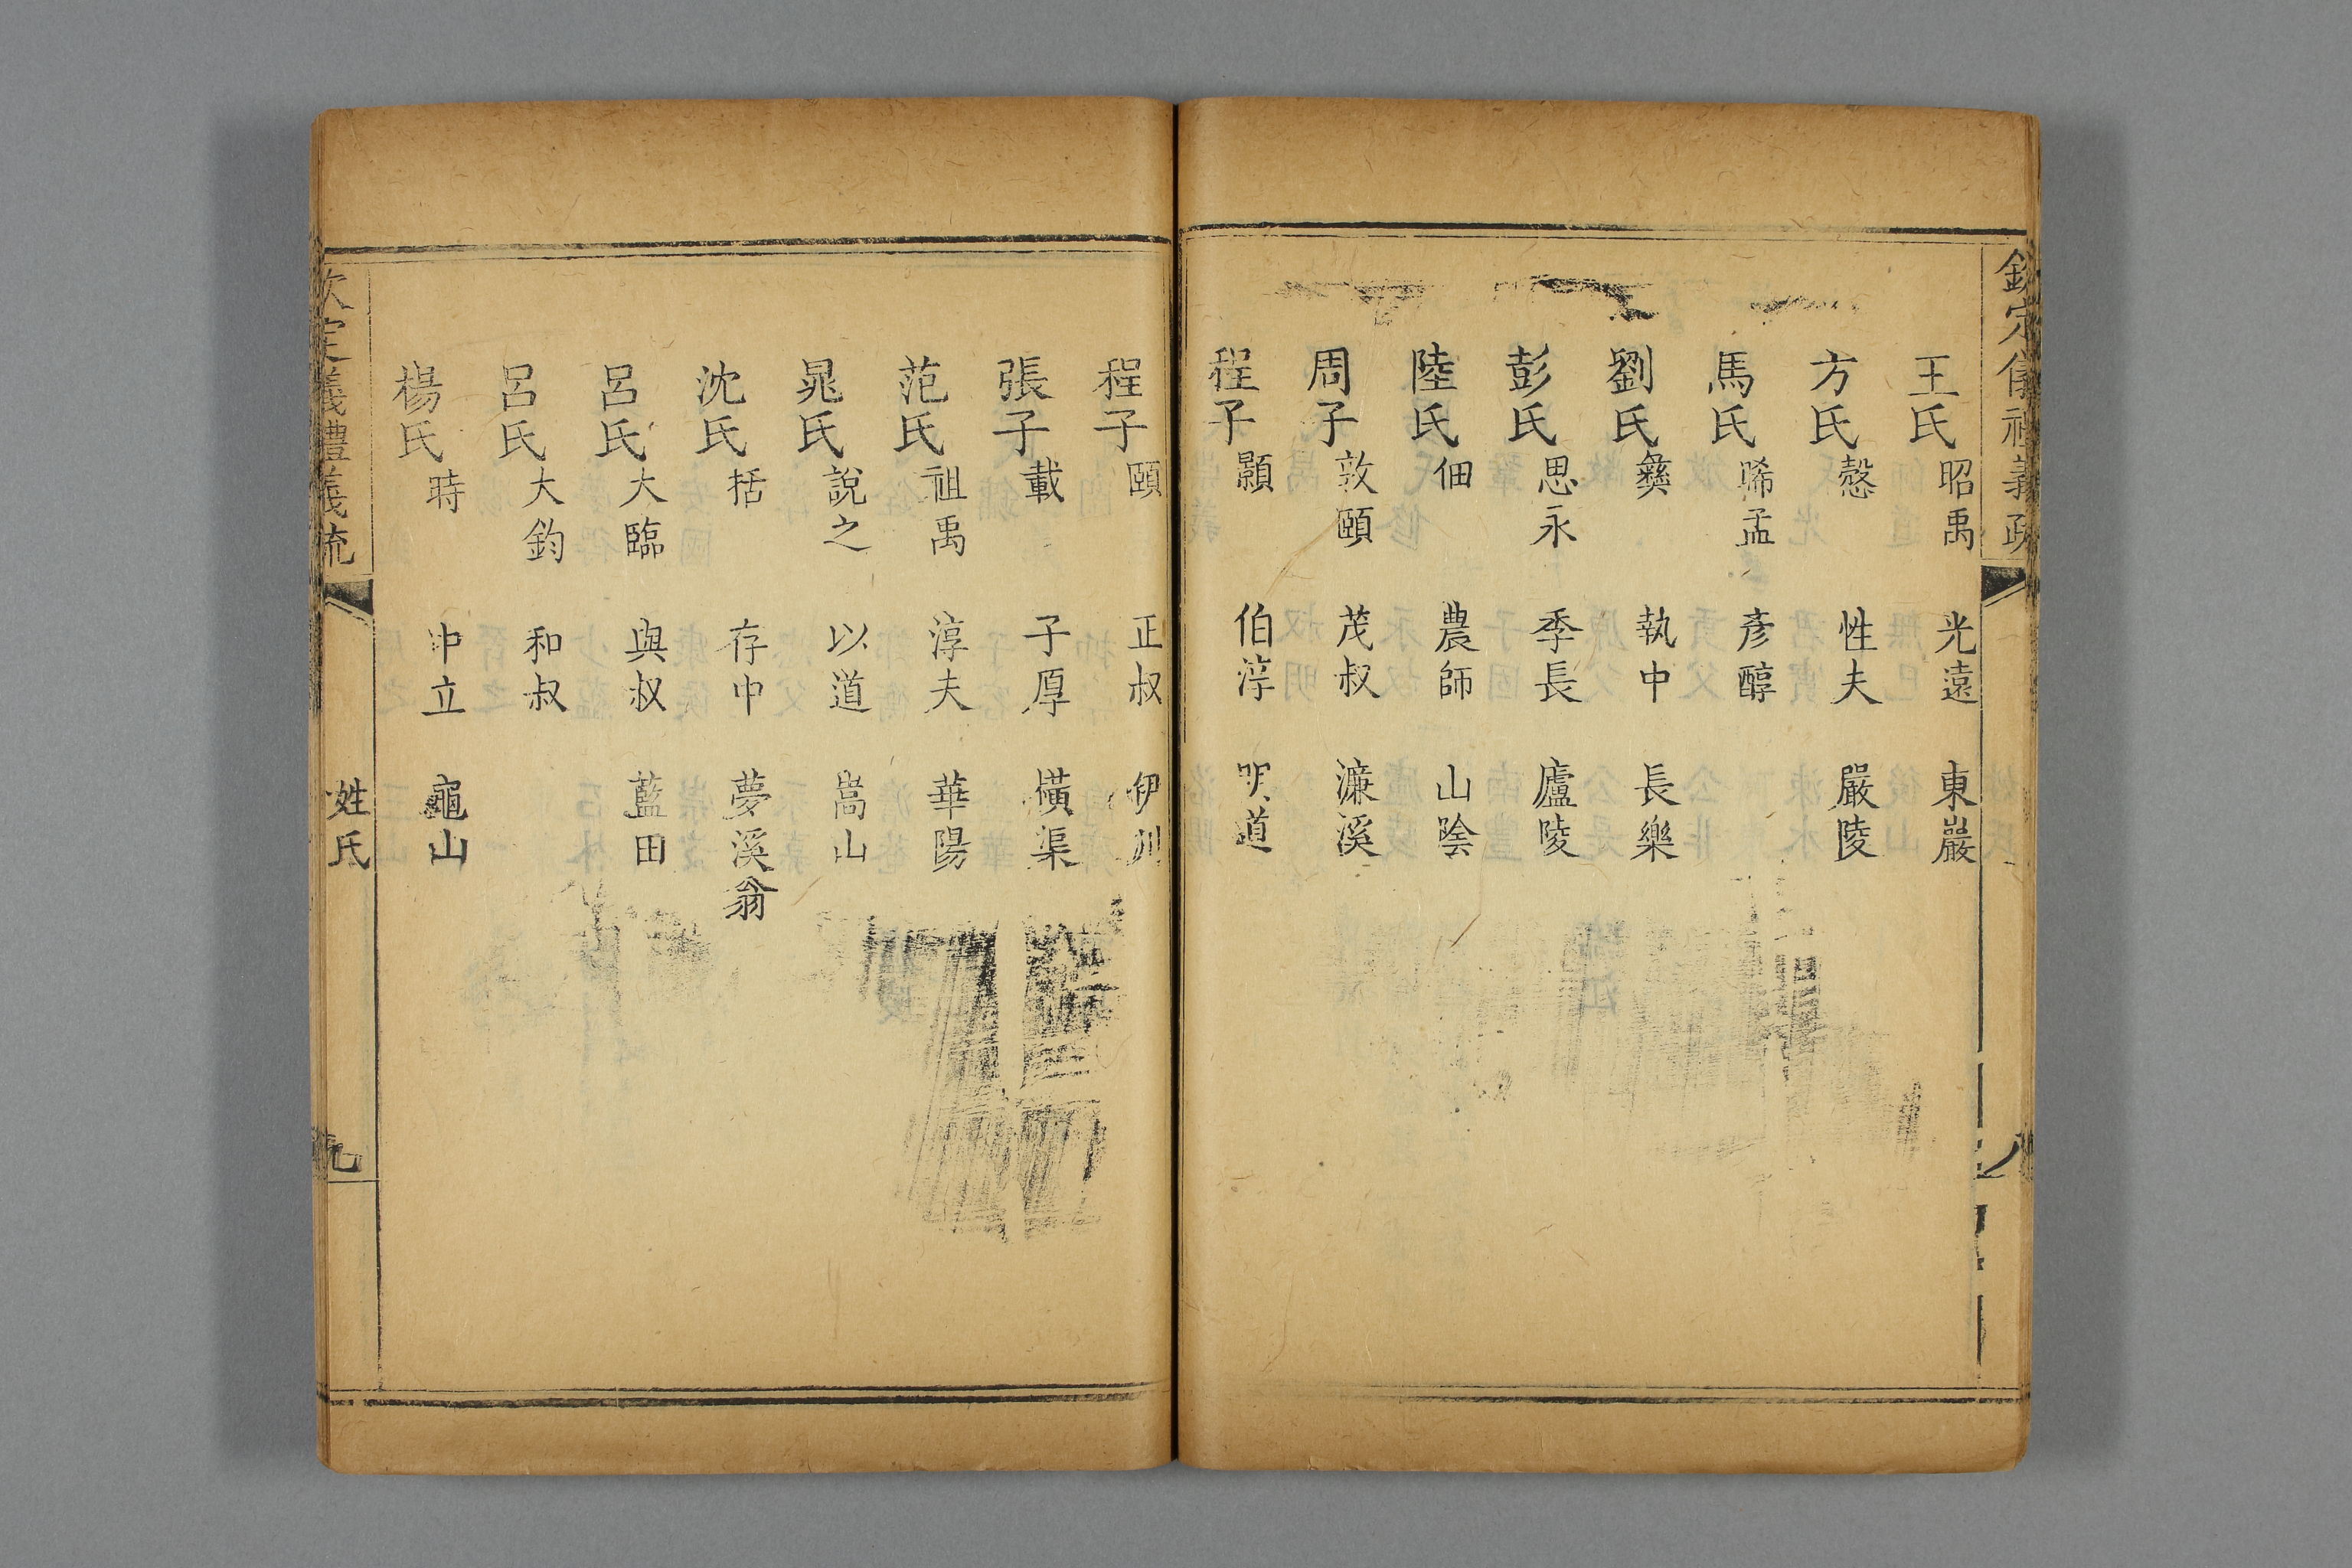 欽定儀禮義疏
王氏 昭禹 光遠 東巖
方氏 慤 性夫 嚴陵
馬氏 晞孟 彥醇
劉氏 彝 執中 長樂
彭氏 思永 季長 廬陵
陸氏 佃 農師 山陰
周子 敦頤 茂叔 濂溪
程子 顥 伯淳 明道
程子 頤 正叔 伊川
張子 載 子厚 橫渠
范氏 祖禹 淳夫 華陽
晁氏 說之 以道 嵩山
沈氏 括 存中 夢溪翁
呂氏 大臨 與叔 藍田
呂氏 大鈞 和叔
楊氏 時 中立 龜山
欽定儀禮義疏 姓氏 九